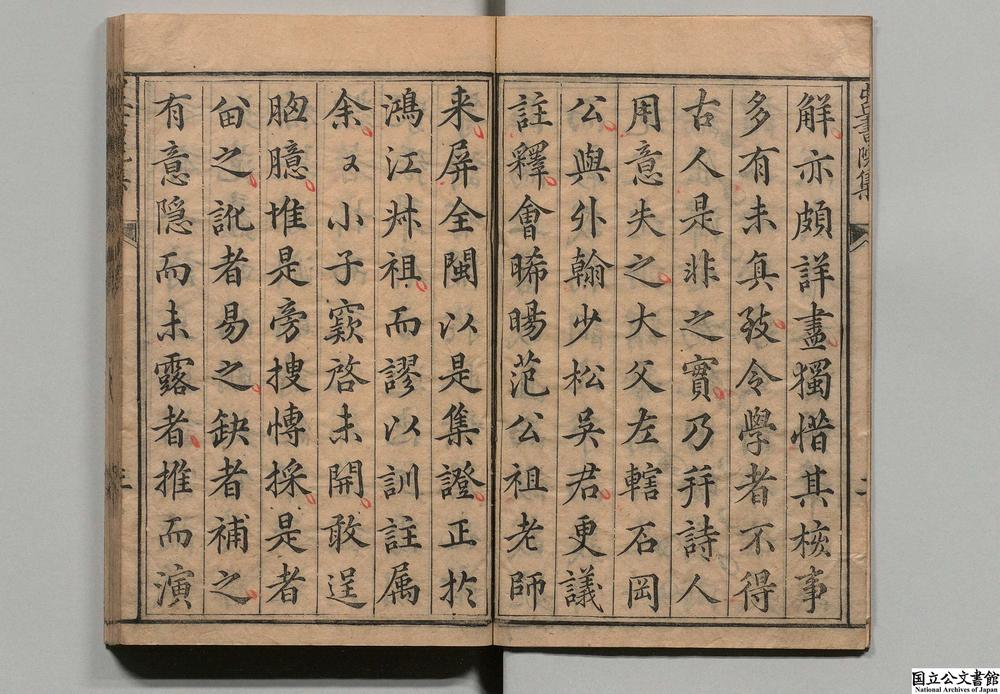 解亦頗詳盡獨惜其核事
多有未真致令學者不得
古人是非之實乃并詩人
用意失之大父左轄石岡
公與外翰少松吳君更議
註釋會晞暘范公祖老師
来屏全閩以是集證正於
鴻江叔祖而謬以訓註属
余又小子竅啓未開敢逞
胸臆堆是旁搜博採是者
因之訛者易之缺者補之
有意隐而未露者推而演
国立公文書館
National Archives of Japan